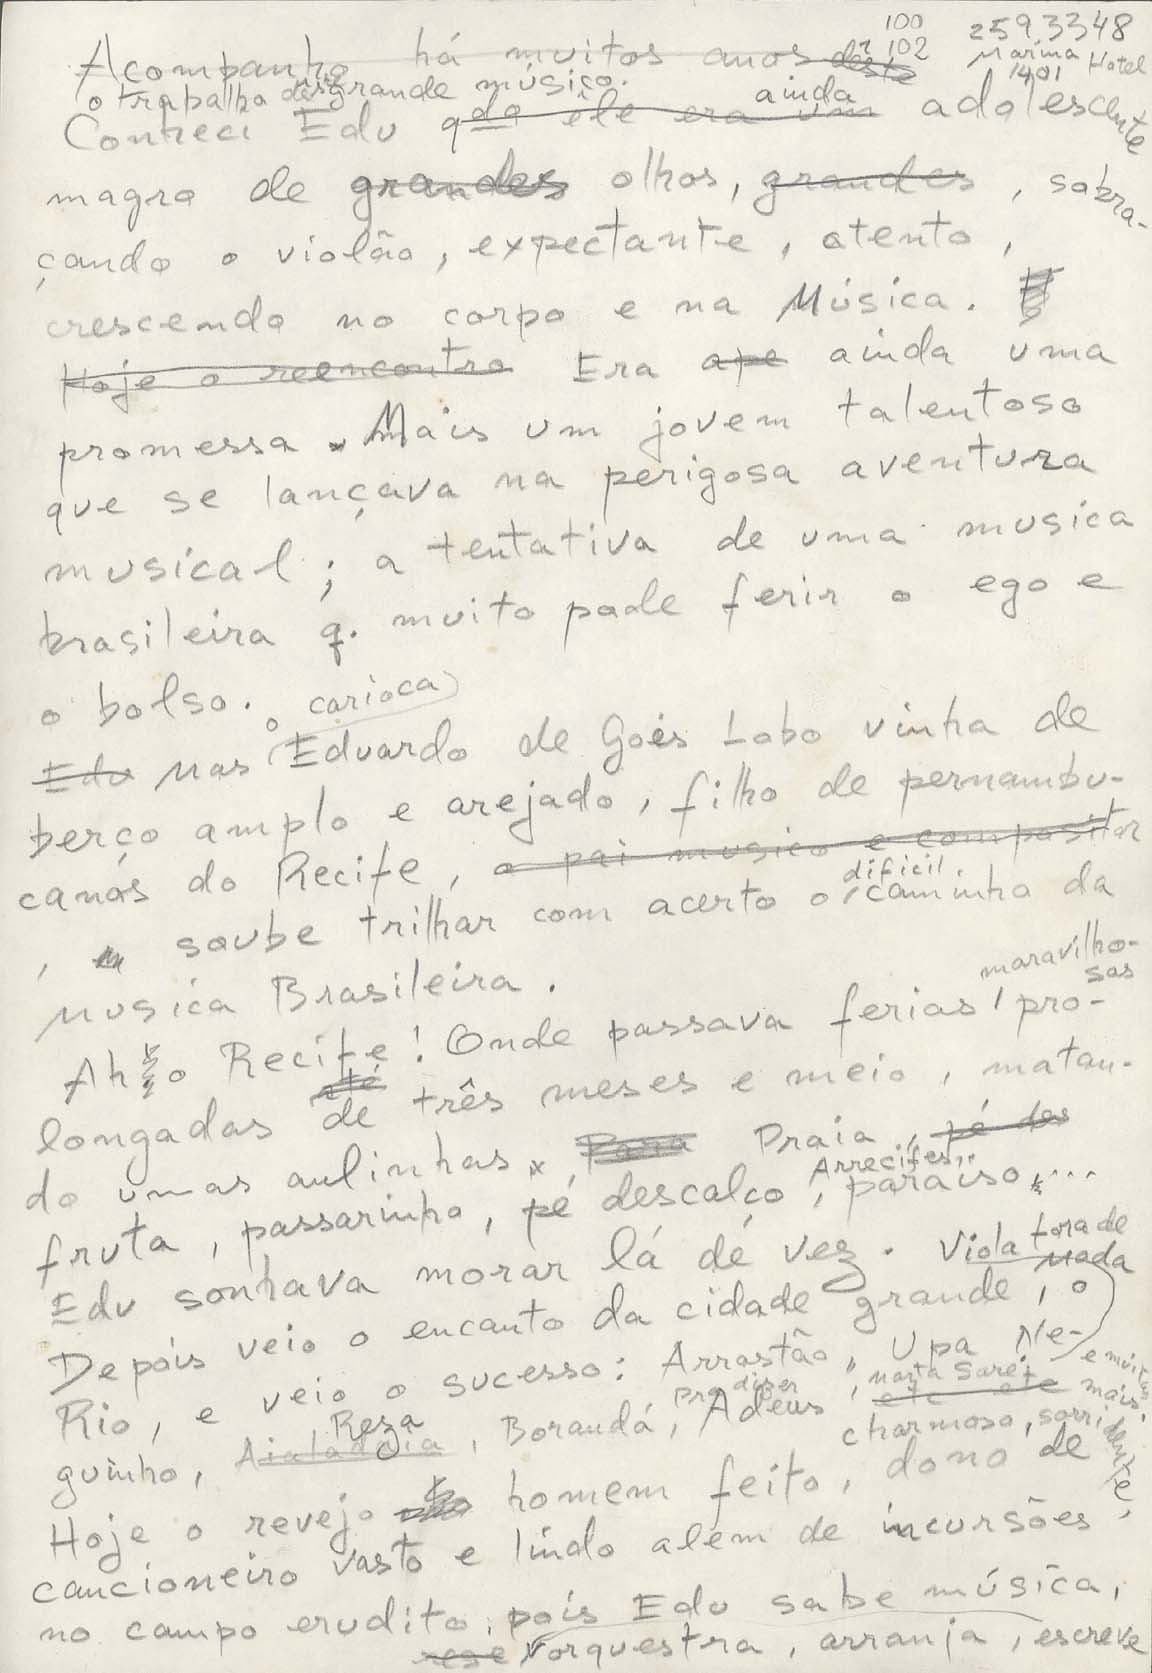 100
r 102
2593348
Marina Hotel
1401
Acompanho há muitos anos deste
o trabalho deste grande músico.
Conheci Edu qdo êle era um ainda adolescente
magro de grandes olhos, grandes, sobra-
çando o violão, expectante, atento,
crescendo no corpo e na Música.
Hoje o reencontro Era ape ainda uma
promessa. Mais um jovem talentoso
que se lançava na perigosa aventura
musical; a tentativa de uma musica
brasileira q. muito pode ferir o ego e
o bolso. o carioca
Edu Mas Eduardo de Goés Lobo vinha de
berço amplo e arejado, filho de pernambu-
canos do Recife, o pai musico e compositor
, soube trilhar com acerto o dificil caminho da
Musica Brasileira.
Ah o Recife! Onde passava ferias maravilho-
sas, pro-
longadas até de três meses e meio, matan-
do umas aulinhas, Praia, pé des
fruta, passarinho, pé descalço, Arrecifes.. paraíso...
Edu sonhava morar lá de vez. Viola fora de
Nada
Depois veio o encanto da cidade grande, o
Rio, e veio o sucesso: Arrastão, Upa Ne-
guinho, Aialadaia Reza, Borandá, Pra dizer Adeus, Marta Saré, etc etc e muitas mais.
charmoso, sorridente,
Hoje o revejo homem feito, dono de
cancioneiro vasto e lindo além de incursões
no campo erudito, pois Edu sabe música,
orquestra, arranja, escreve